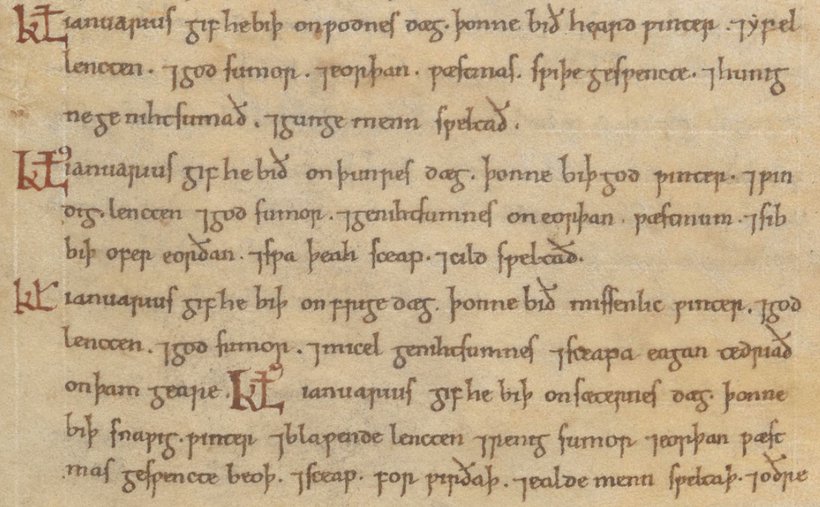 kł ianuarius gif he biþ on ƿodnes dæg. þonne bið heard ƿinter. ⁊ yfel
lencten. ⁊ god sumor. ⁊ eorþan. ƿæstmas. sƿiþe gesƿencte. ⁊ hunig
ne genihtsumað. ⁊ gunge menn sƿeltað.
kł⁹ ianuarius gif he bið on þunres dæg. þonne biþ god ƿinter. ⁊ ƿin
dig. lencten ⁊ god sumor. ⁊ genihtsumnes on eorþan. ƿæstmum. ⁊ sib
biþ ofer eorðan. ⁊ sƿa þeah sceap. ⁊ cild sƿeltað.
kł ianuarius gif he biþ on frige dæg. þonne bið missenlic ƿinter. ⁊ god
lencten. ⁊ god sumor. ⁊ micel genihtsumnes ⁊ sceapa eagan tedriað
on þam geare. kł⁹ ianuarius gif he biþ on sæternes dæg. þonne
biþ snaƿig. ƿinter ⁊ blaƿende lencten ⁊ renig sumor ⁊ eorþan ƿæst
mas gesƿencte beoþ. ⁊ sceap. for ƿirðaþ. ⁊ ealde menn sƿeltaþ. ⁊ oðre